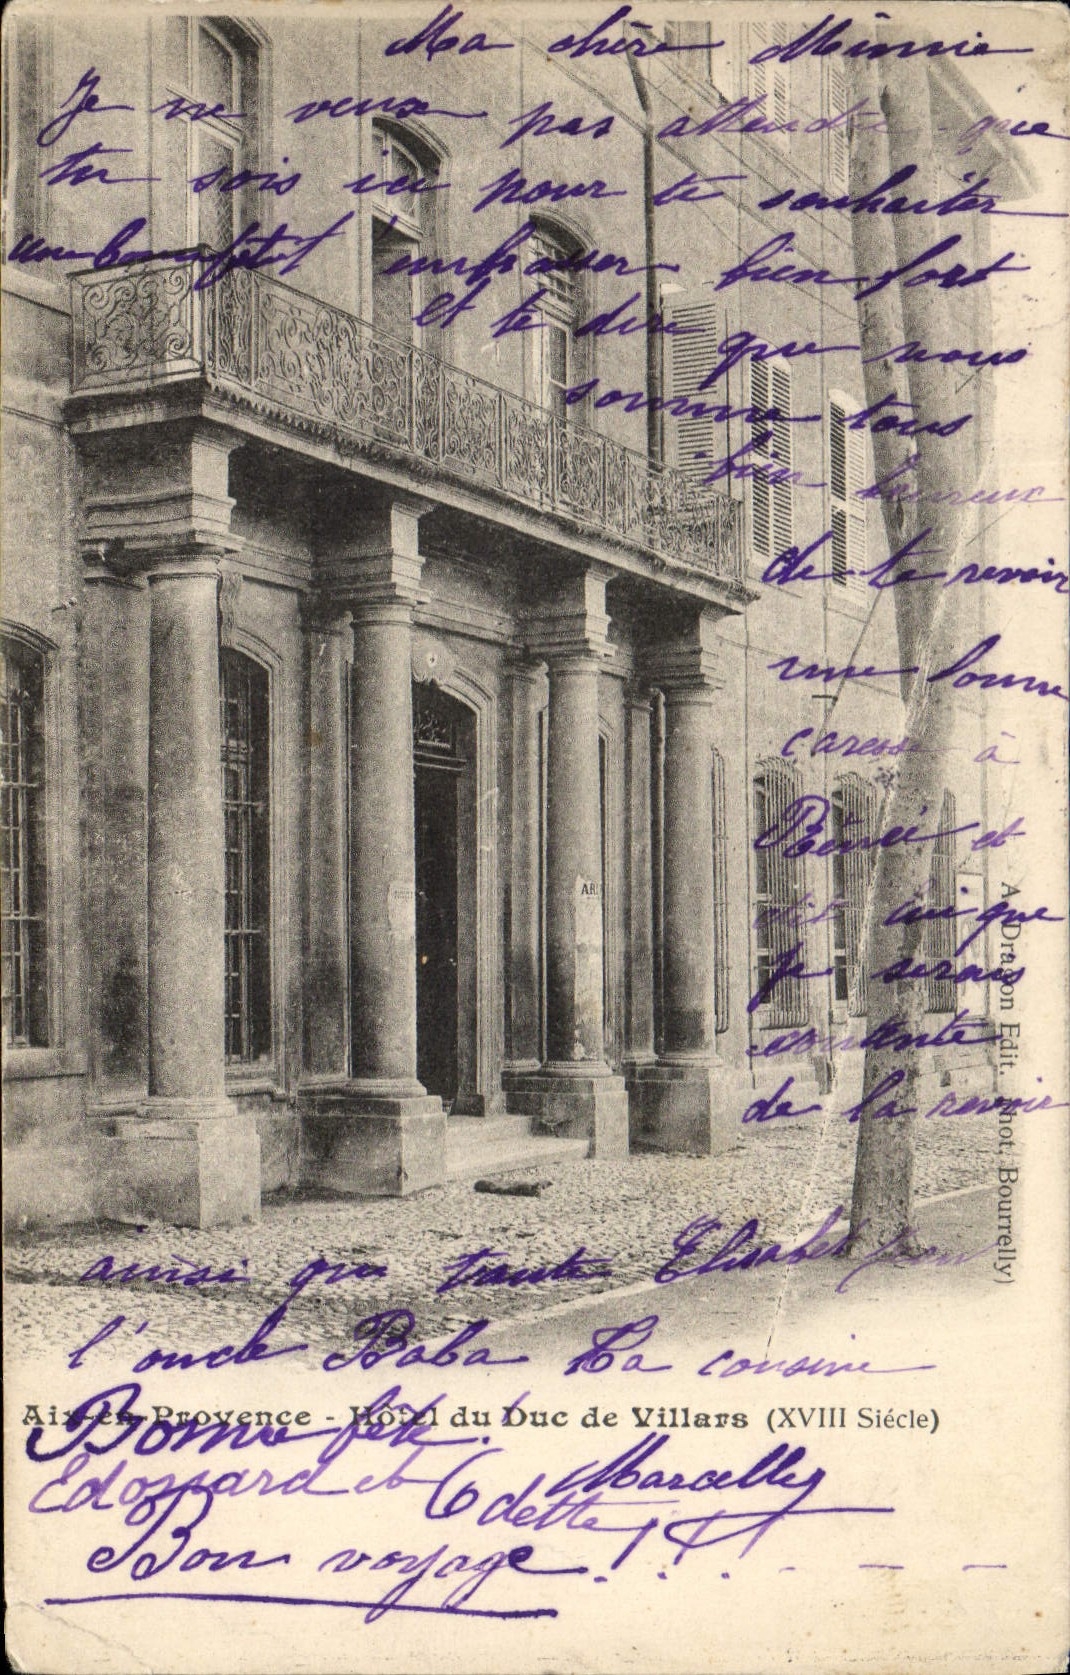 Ma chère Mimie
Je ne veux pas attendre que
tu sois ici pour te souhaiter
une bonne fête t'embrasser bien fort
et te dire que nous
somme tous
bien heureux
de te revoir
une bonne
caresse à
Renée et
dit lui que
je serais
contente
de la revoir
ainsi que tante Elisabeth
l'oncle Baba Ta cousine
Marcelle
Aix-en-Provence - Hôtel du Duc de Villars (XVIII Siécle)
Bonne fête.
Edouard et Odette
Bon voyage!
A. Dragon Edit. Phot. Bourrelly)
AR